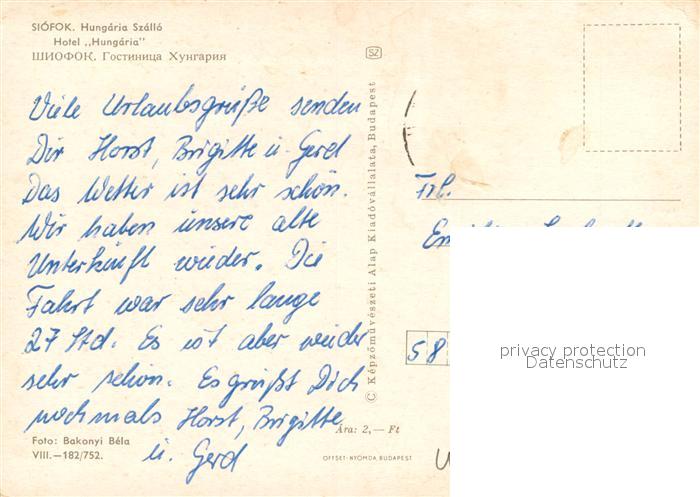 SIÓFOK. Hungária Szálló
Hotel „Hungária"
ШИОФОК. Гостиница Хунгария
Viele Urlaubsgrüße senden
Dir Horst, Brigitte u. Gerd
Das Wetter ist sehr schön.
Wir haben unsere alte
Unterkunft wieder. Die
Fahrt war sehr lange
27 Std. Es ist aber wieder
sehr schön. Es grüßt Dich
nochmals Horst, Brigitte
u. Gerd
Foto: Bakonyi Béla
VIII.—182/752.
Ára: 2,— Ft
OFFSET-NYOMDA BUDAPEST
© Képzőművészeti Alap Kiadóvállalata, Budapest
SZ
Frl.
58
privacy protection
Datenschutz